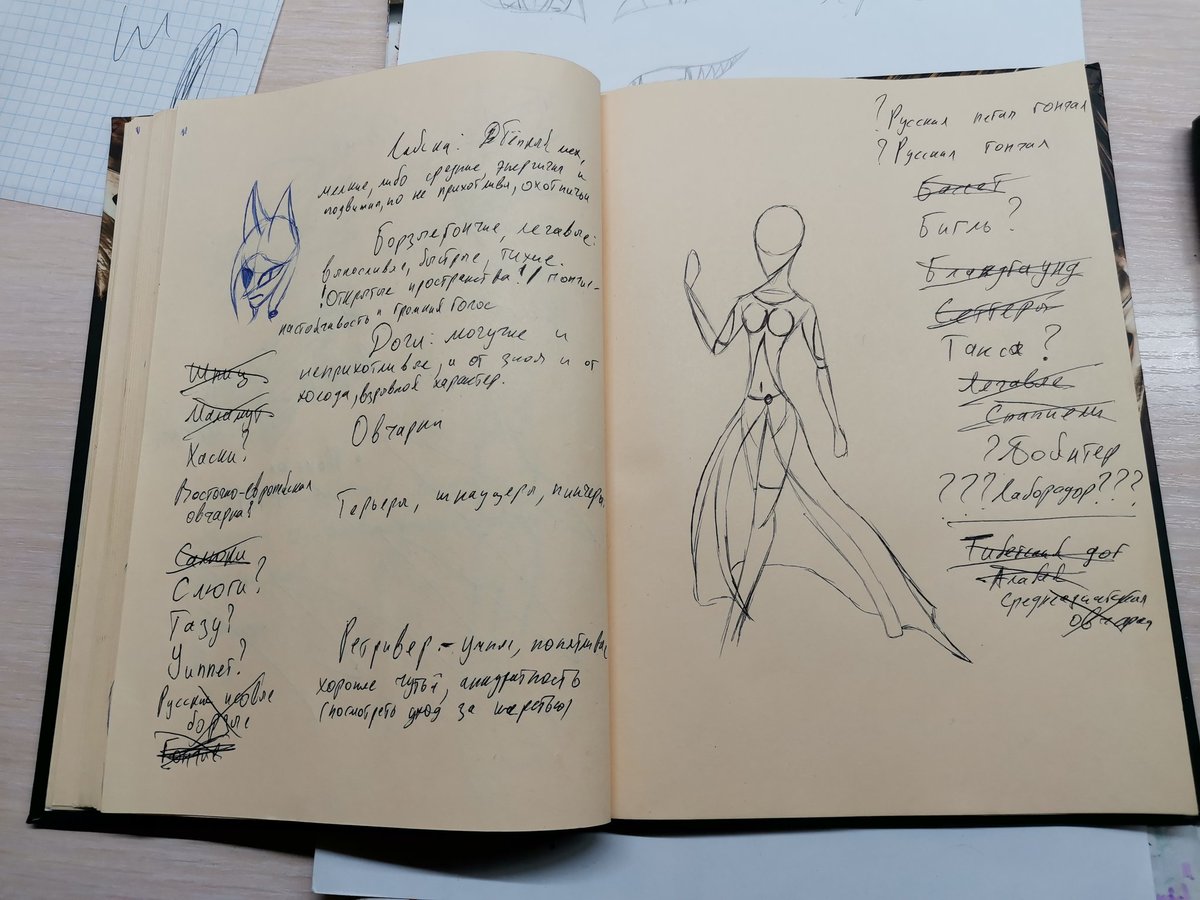 Лайка: Тёплый мех,
мелкие, либо средние, энергичны и
подвижны, но не прихотливы, охотничьи
Борзые гончие, легавые:
выносливые, быстрые, тихие.
!Открытые пространства!! гончие-
настойчивость и громкий голос
Доги: могучие и
неприхотливые, и от зноя и от
холода, взрывной характер.
Овчарки
Терьеры, шнауцеры, пинчеры
Ретривер - умны, понятливы
хорошее чутьё, аккуратность
(посмотреть уход за шерстью)
Шпиц
Маламут
Хаски?
Восточно-европейская
овчарка?
Салюки
Слюги?
Тазы?
Уиппет?
Русские псовые
борзые
Гончие
?Русская пегая гончая
?Русская гончая
Бассет
Бигль?
Бладхаунд
Сеттеры
Такса?
Легавые
Спаниели
?Лабрадор???
Тибетский дог
Алабай
Среднеазиатская
овчарка